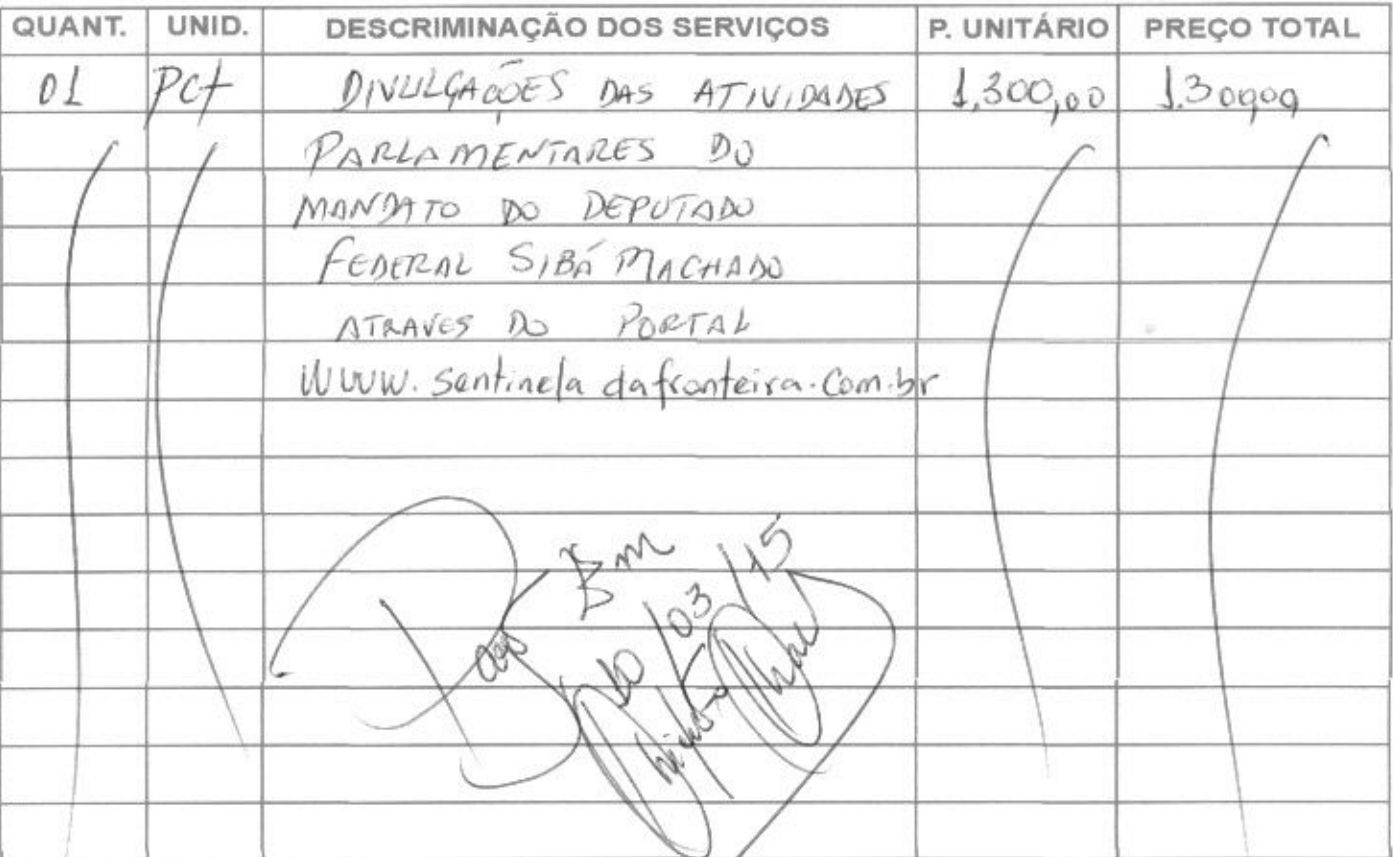 QUANT. UNID. DESCRIMINAÇÃO DOS SERVIÇOS P. UNITÁRIO PREÇO TOTAL
01 Pct DIVULGAÇÕES DAS ATIVIDADES 1.300,00 1.300,00
PARLAMENTARES DO
MANDATO DO DEPUTADO
FEDERAL SIBÁ MACHADO
ATRAVES DO PORTAL
WWW.sentineladafronteira.com.br
Em
10/03/15